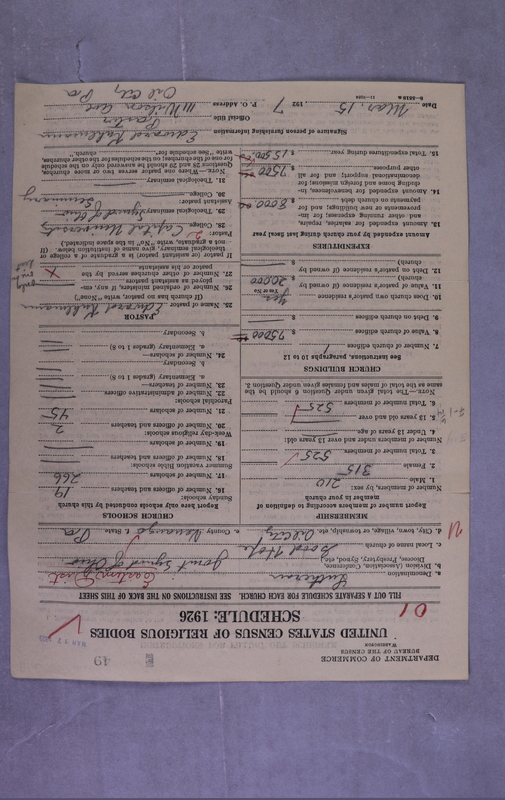 DEPARTMENT OF COMMERCE
BUREAU OF THE CENSUS
WASHINGTON
49
UNITED STATES CENSUS OF RELIGIOUS BODIES
SCHEDULE: 1926
01
FILL OUT A SEPARATE SCHEDULE FOR EACH CHURCH. SEE INSTRUCTIONS ON THE BACK OF THIS SHEET
a. Denomination Lutheran
b. Division (Association, Conference, Diocese, Presbytery, Synod, etc.) Joint Synod of Ohio Eastern Dist
c. Local name of church Good Hope
d. City, town, village, or township, etc. Oil City e. County Venango f. State Pa
MEMBERSHIP
Report number of members according to definition of member in your church
Number of members, by sex:
1. Male 210
2. Female 315
3. Total number of members 525
Number of members under and over 13 years old:
4. Under 13 years of age
5. 13 years old and over
6. Total number of members 525
NOTE.—The total given under question 6 should be the same as the total of males and females given under question 3.
CHURCH BUILDINGS
See instructions, paragraphs 10 to 12
7. Number of church edifices 1
8. Value of church edifices $ 75000
9. Debt on church edifices $
10. Does church own pastor's residence Yes
Yes or No
11. Value of pastor's residence (if owned by church) $ 20000
12. Debt on pastor's residence (if owned by church) $
EXPENDITURES
Amount expended by your church during last fiscal year
13. Amount expended for salaries, repairs, and other running expenses; for improvements or new buildings; and for payments on church debt $ 8000
14. Amount expended for benevolences, including home and foreign missions; for denominational support; and for all other purposes $ 7500
15. Total expenditures during year $ 15500
CHURCH SCHOOLS
Report here only schools conducted by this church
Sunday schools:
16. Number of officers and teachers 19
17. Number of scholars 266
Summer vacation Bible schools:
18. Number of officers and teachers
19. Number of scholars
Week-day religious schools:
20. Number of officers and teachers 2
21. Number of scholars 45
Parochial schools:
22. Number of administrative officers
23. Number of teachers—
a. Elementary (grades 1 to 8)
b. Secondary
24. Number of scholars—
a. Elementary (grades 1 to 8)
b. Secondary
PASTOR
25. Name of pastor Edward Kuhlmann
(If church has no pastor, write "None")
26. Number of ordained ministers, if any, employed as assistant pastors
27. Number of other churches served by the pastor or his assistants
If pastor (or assistant pastor) is a graduate of a college or theological seminary, give name of institution below. (If not a graduate, write "No" in the space indicated.)
Pastor:
28. College Capital University
29. Theological seminary Synod of Ohio Seminary
Assistant pastor:
30. College
31. Theological seminary
Signature of person furnishing information Edward Kuhlmann
Official title Pastor
Date Mar. 15 192 7 P. O. Address 111 Wilson Ave
Oil City Pa